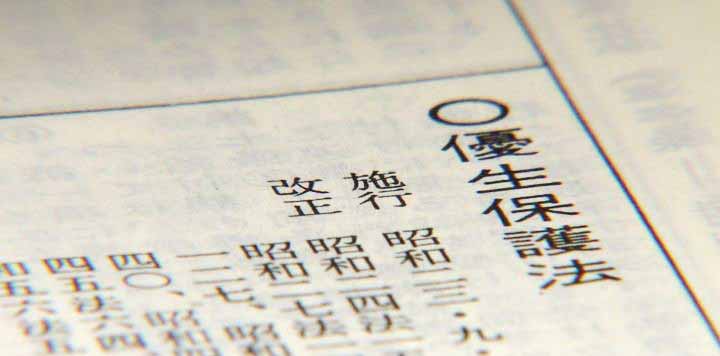 ○優生保護法
施行 昭和二三・九・
改正 昭和二四法二
昭和二七法一
一二七、昭和
四〇、昭和四
四五法六四
和五六法五